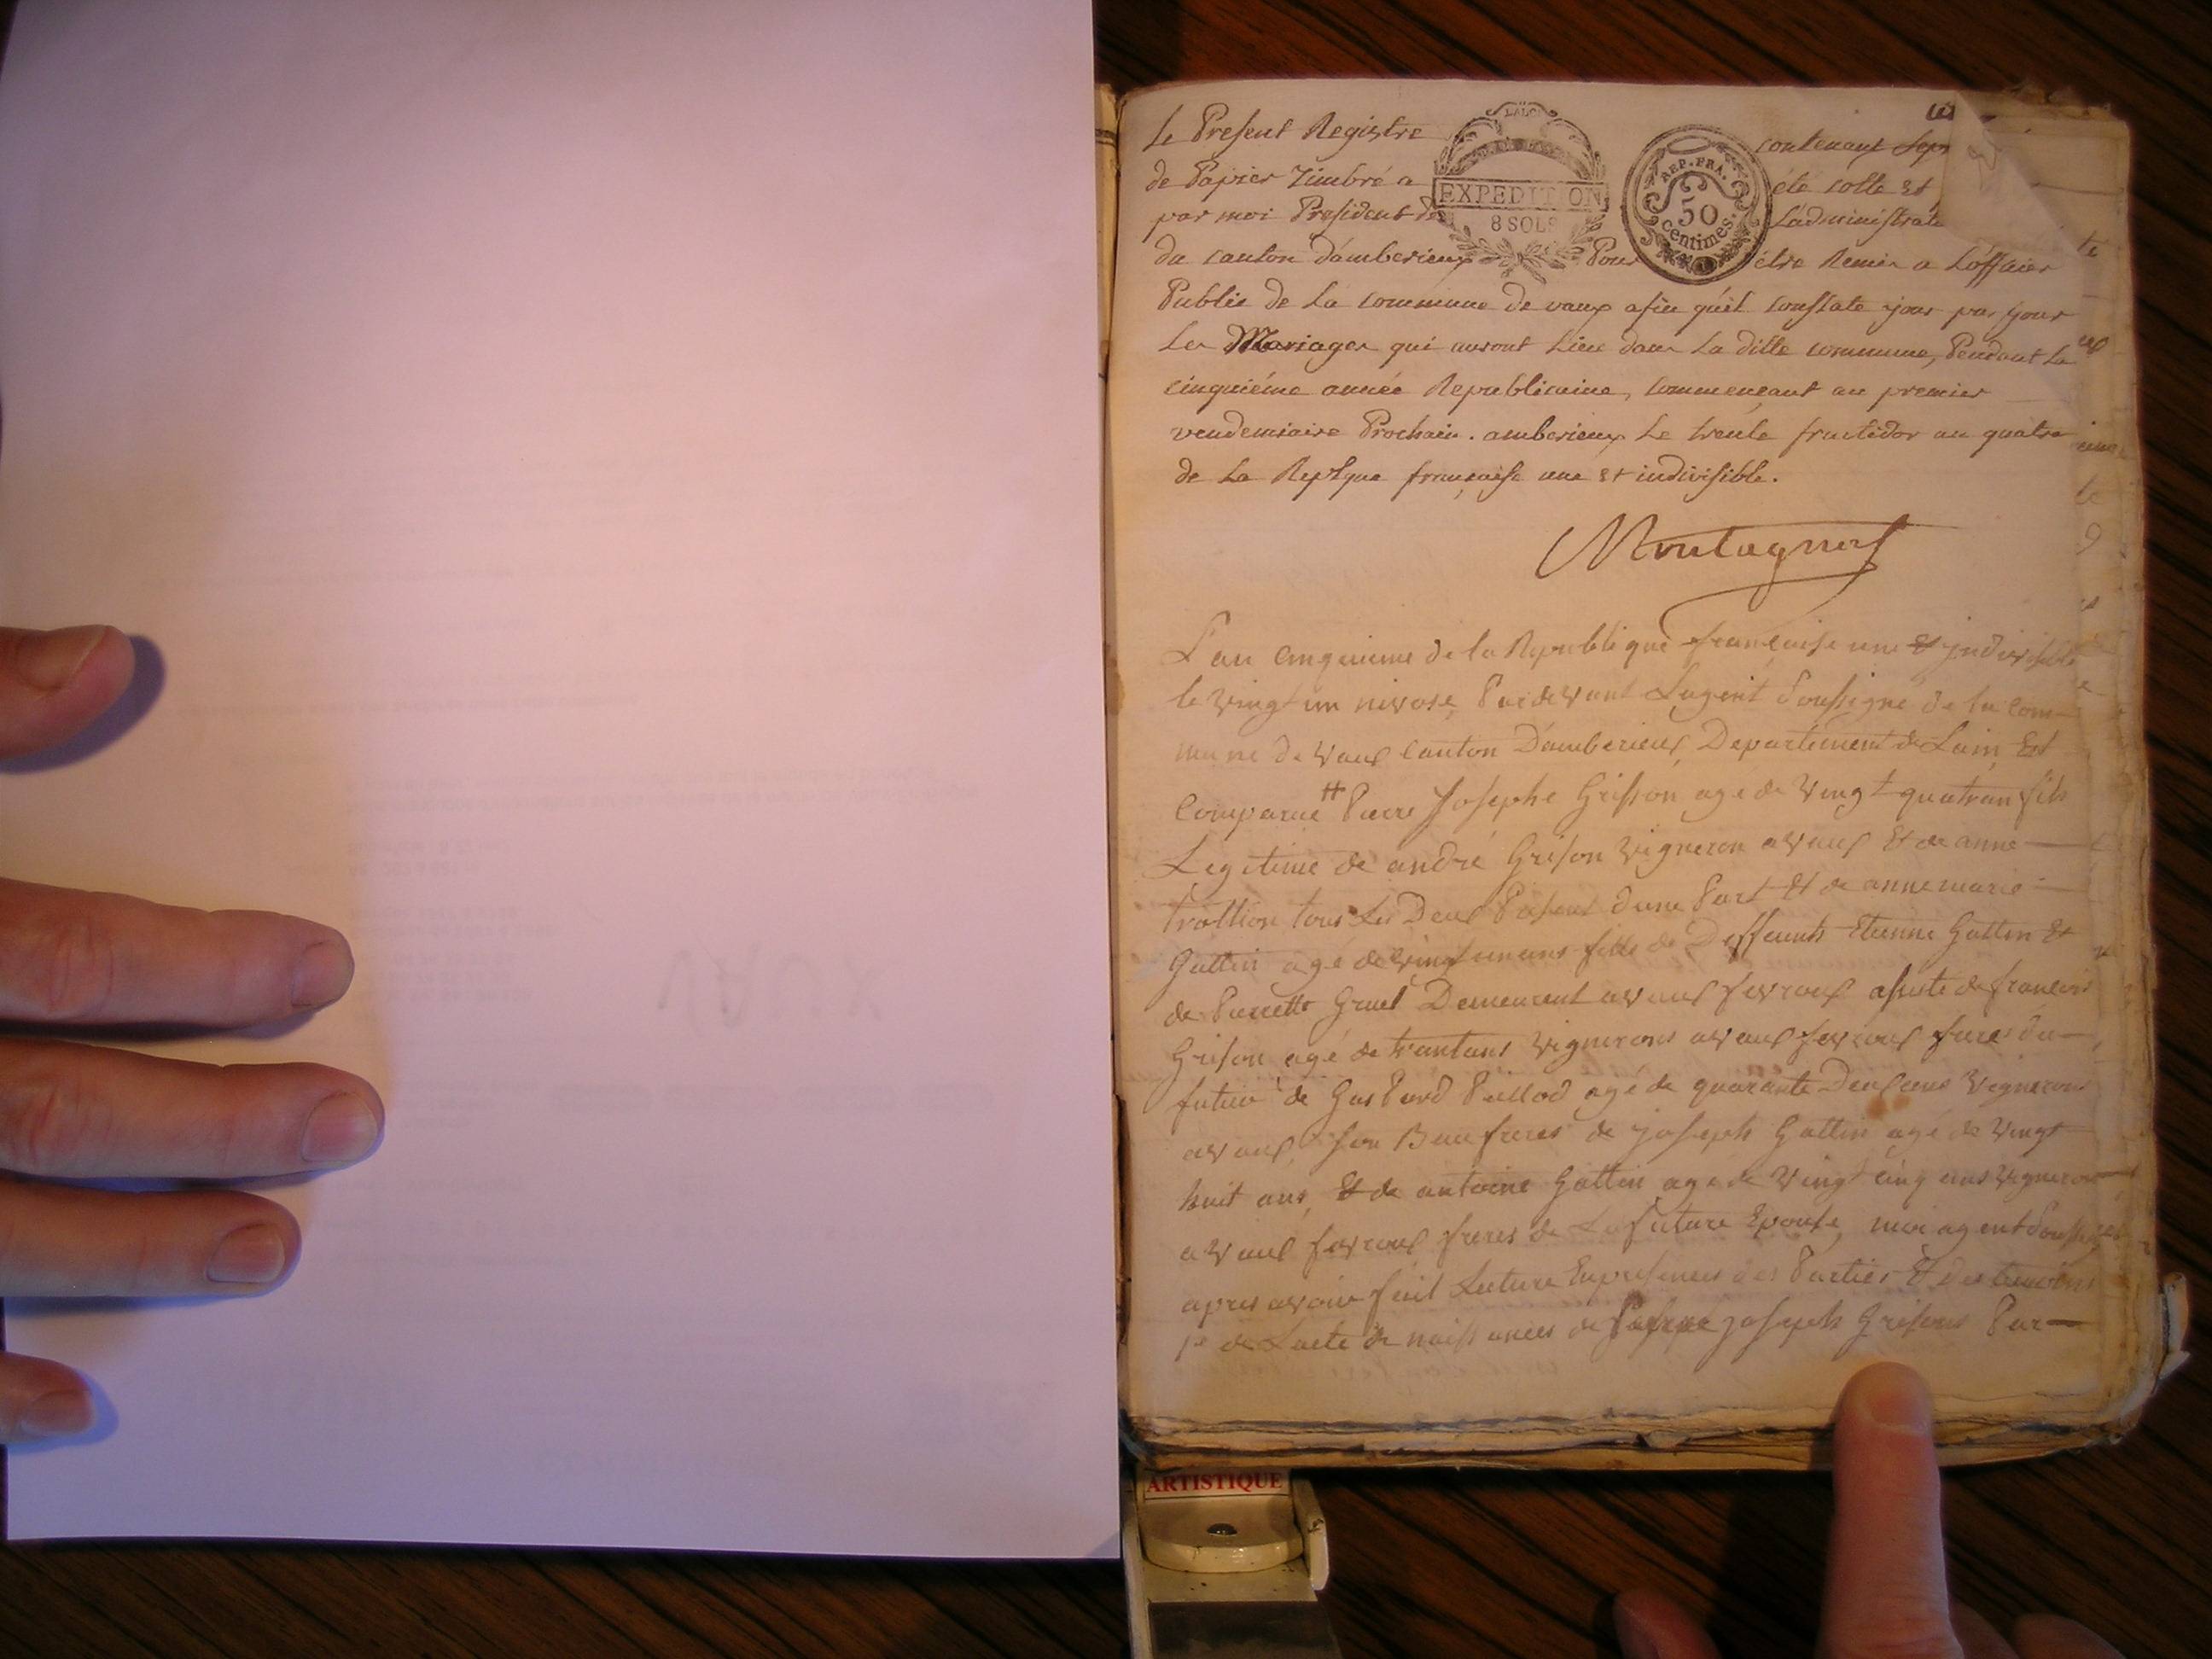 Le Present Registre contenant sept
de Papier Timbré a été cotté et
par moi President de L'administrat
du canton d'amberieux Pour être Remis a L'officier
Public de la commune de vaux afin qu'il constate jour par jour
Les Mariages qui auront Lieu dans La ditte commune, Pendant La
cinquiéme année Republicaine, commencant au premier
vendemiaire Prochain. amberieux Le trente fructidor an quatre
de La Repbque française une et indivisible.
LAIN
EXPEDITION
8 SOLS
REP. FRA.
50
centimes.
Montagnat
L'an Cinquieme de la Republique francaise une et jndivisible
le vingt un nivose, Pardevant Lagent Soussigné de la Com-
mune de vaux Canton Damberieux, Departement de Lain, Est
Comparue # Pierre Josephe Grisson agé de vingt quatran fils
Legitime de andré Grison vigneron a vaux Et de anne
trottion tous Les Deux Present dune Part Et de anne marie
Guttin agé de vingt unans fille de Deffeunts Etienne Guttin Et
de Pierrette Gruet Demeurent a vaux fevroux assisté de francois
Grison agé de trantans vignerons a vaux fevroux frere du
futur de Gaspard Paillod agé de quarante Deux ans vignerons
a vaux, son Beaufreres de joseph Guttin agé de vingt
huit ans, Et de antoine Guttin agé de vingt cinq ans vigneron
a vaux fevroux freres de La future Epouse, moi agent Soussigné
apres avoir fait Lecture Enpresences des Parties Et des temoins
1º de Lacte de naissances de joseph Grisons Par
ARTISTIQUE